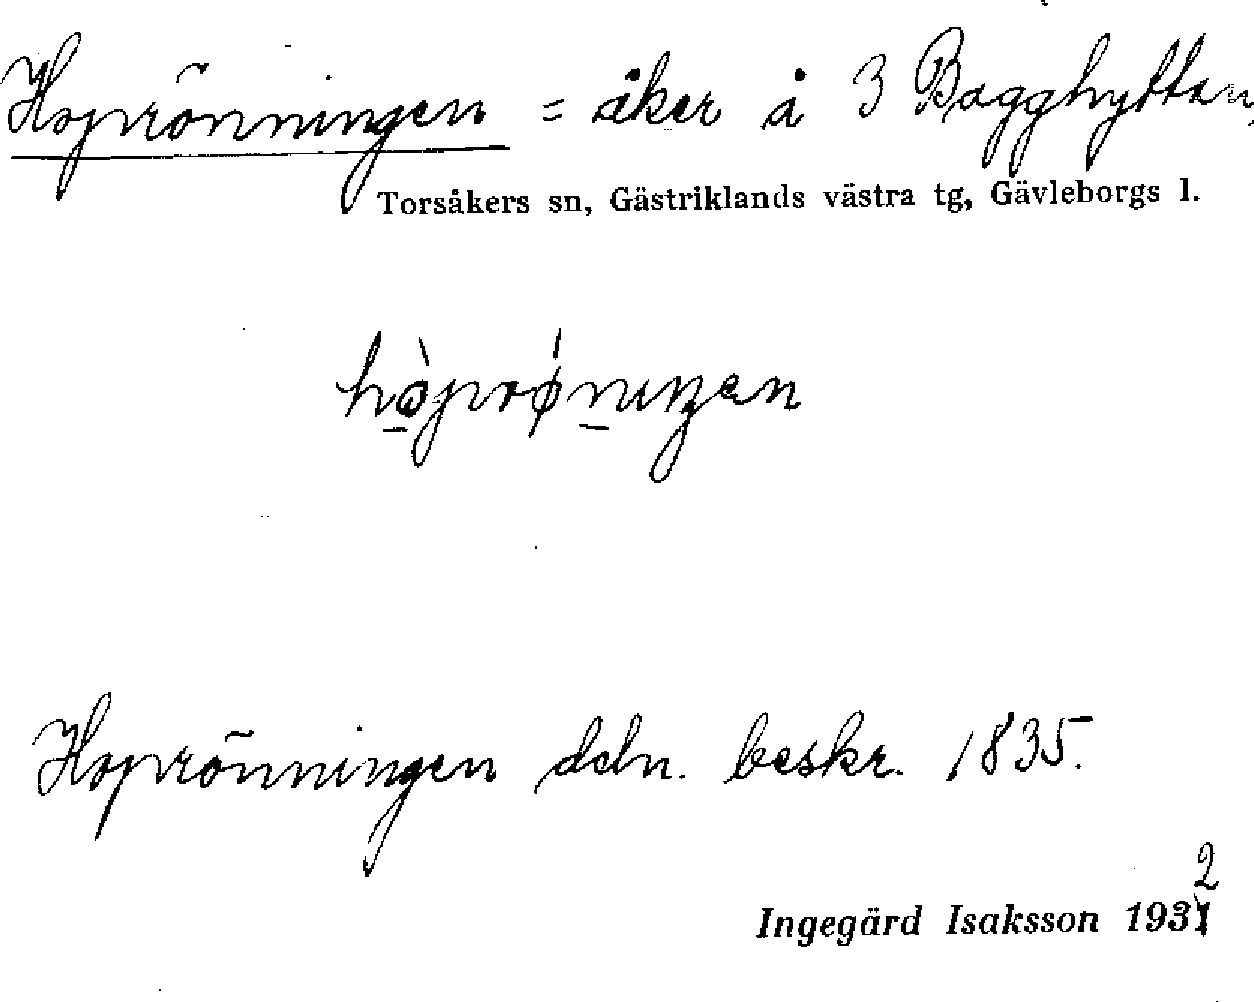 Hoprönningen = åker å 3 Bagghyttan,
Torsåkers sn, Gästriklands västra tg, Gävleborgs l.
hòprǿniŋen
Hoprönningen deln. beskr. 1835.
2
Ingegärd Isaksson 1931